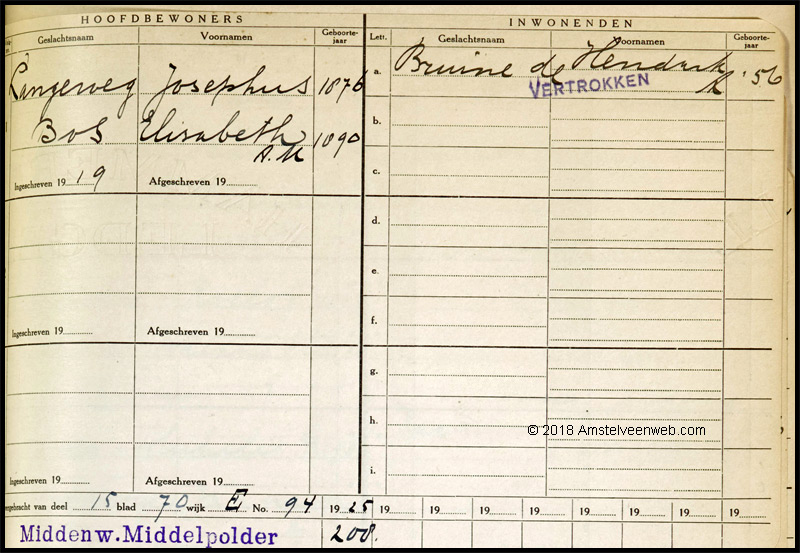 HOOFDBEWONERS
Geslachtsnaam Voornamen Geboorte-jaar
Langeweg Josephus 1876
Bos Elisabeth 1890
A.M
Ingeschreven 19 19 Afgeschreven 19
Ingeschreven 19 Afgeschreven 19
Ingeschreven 19 Afgeschreven 19
INWONENDEN
Lett. Geslachtsnaam Voornamen Geboorte-jaar
a. Bruine de Hendrik '56
VERTROKKEN
b.
c.
d.
e.
f.
g.
h.
© 2018 Amstelveenweb.com
i.
gebracht van deel 15 blad 70 wijk E No. 94 19 25 19 19 19 19 19 19 19 19
Middenw. Middelpolder 208.